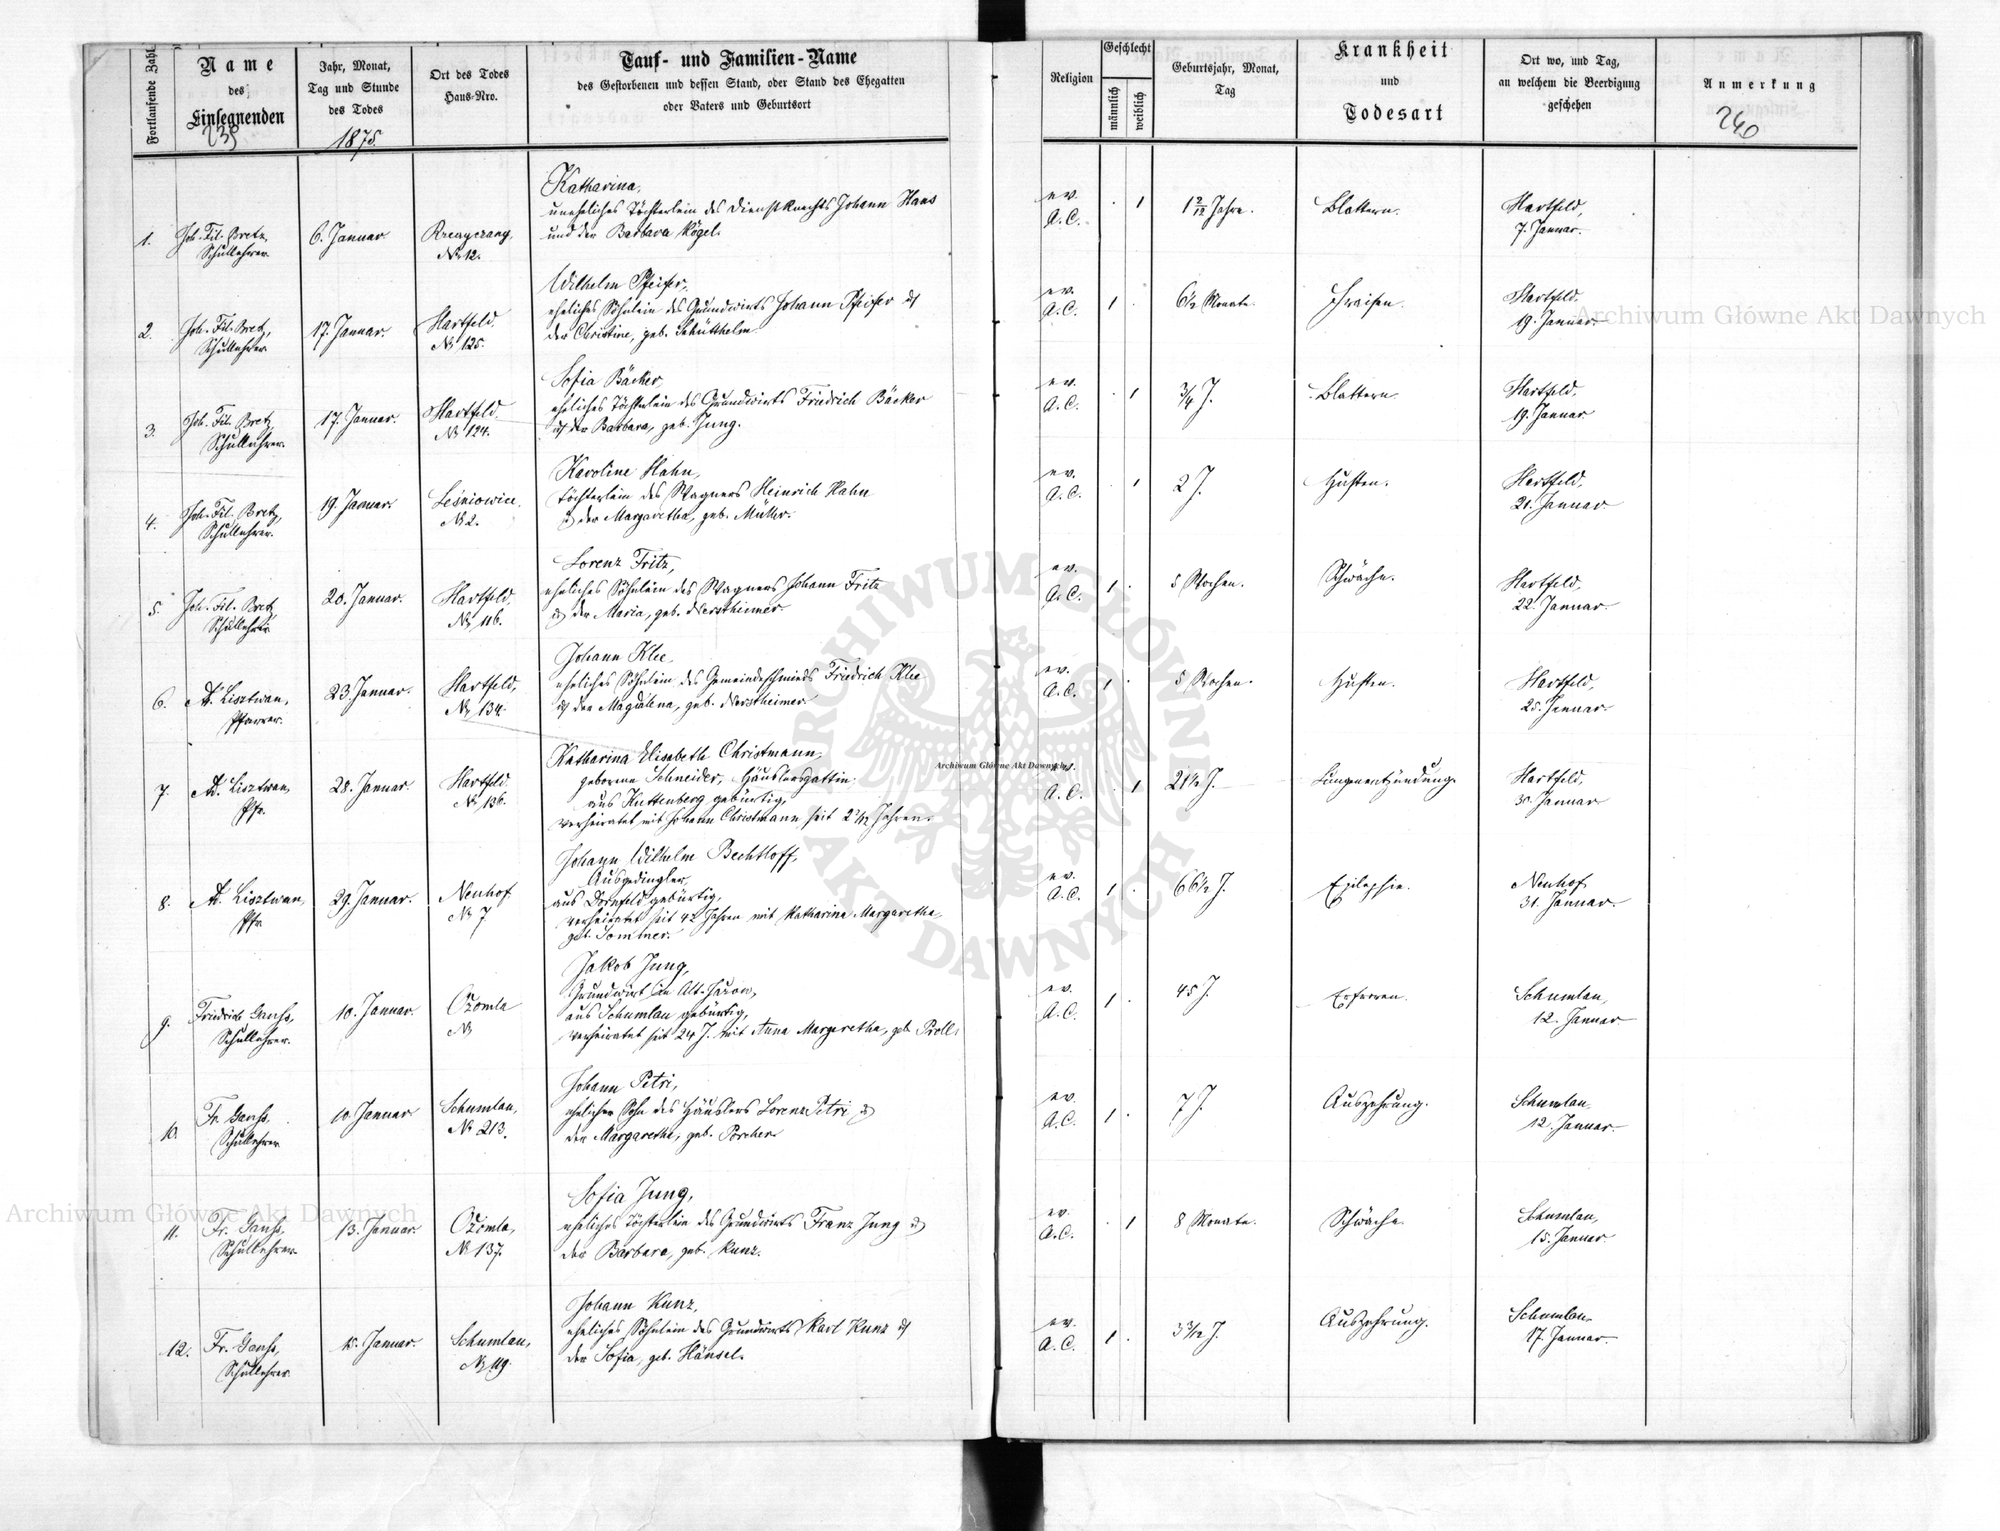 Fortlaufende Zahl
Name
des
Einsegnenden
239
Jahr, Monat,
Tag und Stunde
des Todes
1875.
Ort des Todes
Haus-Nro.
Tauf- und Familien-Name
des Gestorbenen und dessen Stand, oder Stand des Ehegatten
oder Vaters und Geburtsort
Religion
Geschlecht
männlich
weiblich
Geburtsjahr, Monat,
Tag
Krankheit
und
Todesart
Ort wo, und Tag,
an welchem die Beerdigung
geschehen
Anmerkung
240
1.
Joh. Fil. Bretz,
Schullehrer.
6. Januar
No 12.
Katharina,
uneheliches Töchterlein des Dienstknechts Johann Hans
und der Barbara Kögel.
ev.
A.C.
1
1 2/12 Jahre.
Blattern.
Hartfeld,
7. Januar.
2.
Joh. Fil. Bretz,
Schullehrer
17. Januar.
Hartfeld.
No 125.
Wilhelm Pfeifer,
eheliches Söhnlein des Grundwirts Johann Pfeifer u
der Christine, geb. Schütthelm
ev.
A.C.
1
6 1/2 Monate.
Fraisen.
Hartfeld.
19. Januar.
3.
Joh. Fil. Bretz,
Schullehrer.
17. Januar.
Hartfeld.
No 124.
Sofia Bäcker,
eheliches Töchterlein des Grundwirts Friedrich Bäcker
u der Barbara, geb. Jung.
ev.
A.C.
1
3/4 J.
Blattern.
Hartfeld,
19. Januar
4.
Joh. Fil. Bretz,
Schullehrer.
19. Januar.
Leśniowice.
No 2.
Karoline Hahn,
Töchterlein des Wagners Heinrich Hahn
u der Margaretha, geb. Müller.
ev.
A.C.
1
2 J.
Husten.
Hartfeld,
21. Januar
5.
Joh. Fil. Bretz,
Schullehrer.
20. Januar.
Hartfeld,
No 116.
Lorenz Fritz,
eheliches Söhnlein des Wagners Johann Fritz
u der Maria, geb. Nerstheimer
ev.
A.C.
1
5 Wochen.
Schwäche.
Hartfeld,
22. Januar.
6.
A. Lisztwan,
Pfarrer.
23. Januar.
Hartfeld,
No 134.
Johann Klee,
eheliches Söhnlein des Gemeindeschmieds Friedrich Klee
u der Magdalena, geb. Nerstheimer.
ev.
A.C.
1
5 Wochen.
Husten.
Hartfeld,
25. Januar.
7.
Ad. Lisztwan,
Pfr.
28. Januar.
Hartfeld.
No 136.
Katharina Elisabeth Christmann,
geborene Schneider, Häuslersgattin.
aus Kuttenberg gebürtig,
verheiratet mit Johann Christmann seit 2 7/12 Jahren.
ev.
A.C.
1
21 1/2 J.
Lungenentzündung.
Hartfeld,
30. Januar
8.
A. Lisztwan,
Pfr.
29. Januar.
Neuhof
No 7
Johann Wilhelm Bechtloff,
Ausgedingler,
aus Dornfeld gebürtig,
verheiratet seit 42 Jahren mit Katharina Margaretha
geb. Sommer.
ev.
A.C.
1
66 1/2 J.
Epilepsie.
Neuhof
31. Januar.
9.
Friedrich Ganhs,
Schullehrer.
10. Januar.
Ożomla
No
Jakob Jung,
Grundwirt in Alt-Jazow,
aus Schumlau gebürtig,
verheiratet seit 24 J. mit Anna Margaretha, geb. Proll.
ev.
A.C.
1
45 J.
Erfroren.
Schumlau,
12. Januar
10.
Fr. Ganhs,
Schullehrer
10. Januar
Schumlau,
No 213.
Johann Petri,
ehelicher Sohn des Häuslers Lorenz Petri u
der Margaretha, geb. Porcher
ev.
A.C.
1
7 J.
Auszehrung.
Schumlau
12. Januar.
11.
Fr. Ganhs,
Schullehrer
13. Januar.
Ożomla,
No 137.
Sofia Jung,
eheliches Töchterlein des Grundwirts Franz Jung u
der Barbara, geb. Kunz.
ev.
A.C.
1
8 Monate.
Schwäche.
Schumlau,
15. Januar
12.
Fr. Ganhs,
Schullehrer.
15. Januar.
Schumlau,
No 119.
Johann Kunz,
eheliches Söhnlein des Grundwirts Karl Kunz u
der Sofia, geb. Hänsel.
ev.
A.C.
1
3 3/12 J.
Auszehrung.
Schumlau
17. Januar.
Archiwum Główne Akt Dawnych
Archiwum Główne Akt Dawnych
Archiwum Główne Akt Dawnych
ARCHIWUM GŁÓWNE
AKT DAWNYCH